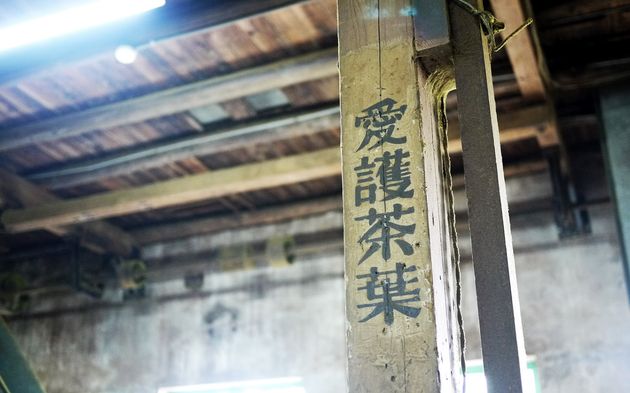 愛護茶葉